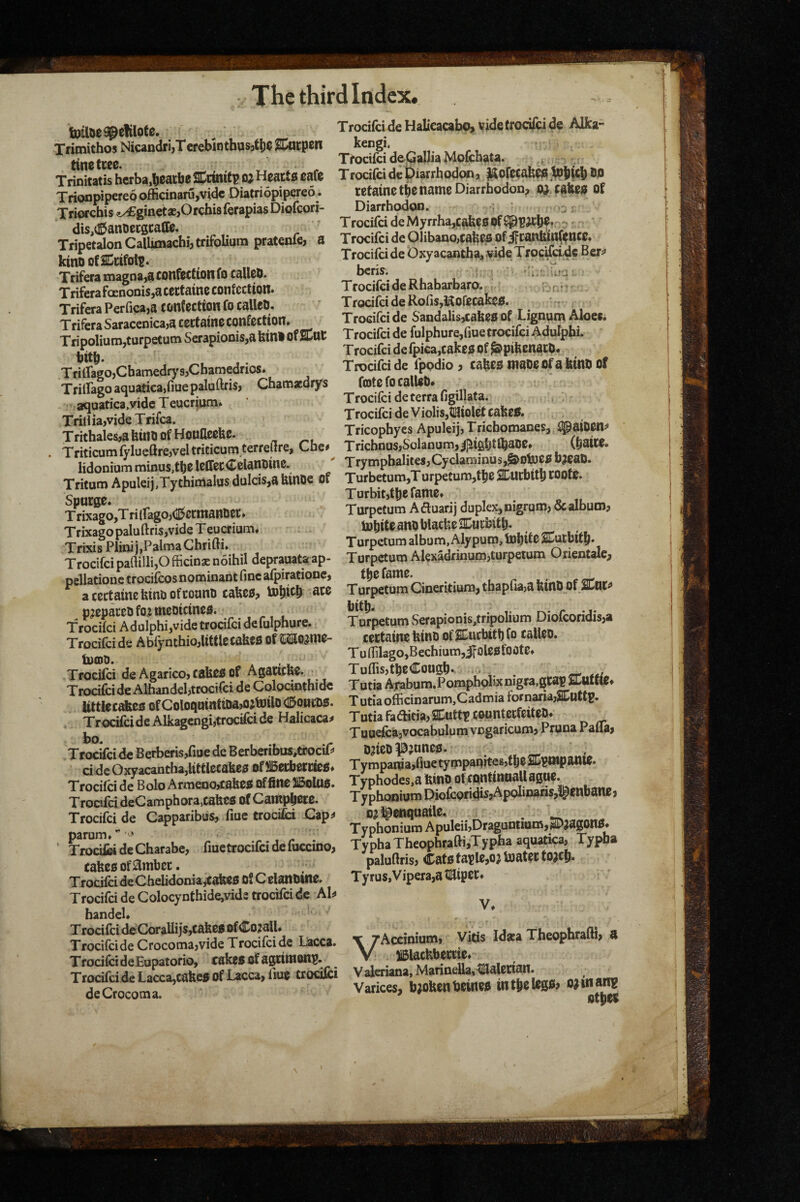 The third Index.
wilde Mekilote.
Trimithos Nicandri,Terebinthus,the Turpen
tine tree.
Trinitatis herba,hearbe Trinity oz Hearts ease
Trionpipereō officinarū,vide Diatriōpipereō.
Triorchis Æginetæ,Orchis serapias Dioscori-
dis,Gandergrasse.
Tripetalon Callimachi, trifolium pratense, a
kind of Trifoly.
Trifera magna,a confection so called.
Trifera fœnonis,a certaine confection.
Trifera Persica,a confection so called.
Trifera Saracenica,a certaine confection.
Tripolium,turpetum Serapionis,a kind of Tur
bith.
Trissago,Chamedrys,Chamedrios.
Trissago aquatica,siue palustris, Chamædrys
aquatica,vide Teucrium.
Trissia,vide Trisca.
Trithales,a kind of Housleeke.
Triticum sylvestre,vel triticum terrestre, Che-
lidonium minus,the lesser Celandine.
Tritum Apuleij,Tythimalus dulcis,a kinde of
Spurge.
Trixago,Trissago,Germander.
Trixago palustris,vide Teucrium.
Trixis Plinij,Palma Christi.
Trocisci pastilli,Officinæ nōihil deprauata ap-
pellatione trociscos nominant sine aspiratione,
a certaine kind of round cakes, which are
prepared for medicines.
Trocisci Adulphi,vide trocisci de sulphure.
Trocisci de Absynthio,little cakes of Worme-
wood.
Trocisci de Agarico, cakes of Agaricke.
Trocisci de Alhandel,trocisci de Colocinthide
little cakes of Coloquintida,or wild Gourds.
Trocisci de Alkagengi,trocisci de Halicaca-
bo.
Trocisci de Berberis,siue de Berberibus,trocis-
ci de Oxyacantha,little cakes of Berberries.
Trocisci de Bolo Armeno,cakes of fine Bolus.
Trocisci deCamphora,cakes of Camphere.
Trocisci de Capparibus, siue trocisci Cap-
parum.
Trocisci de Charabe, siue trocisci de succino,
cakes of Amber.
Trocisci de Chelidonia,cakes of Celandine.
Trocisci de Colocynthide,vide trocisci de Al-
handel.
Trocisci de Corallijs,cakes of Corall.
Trocisci de Crocoma,vide Trocisci de Lacca.
Trocisci de Eupatorio, cakes of agrimony.
Trocisci de Lacca,cakes of Lacca, siue trocisci
de Crocoma.
Trocisci de Halicacabo, vide trocisci de Alka-
kengi.
Trocisci de Gallia Moschata.
Trocisci de Diarrhodon, Rosecakes which do
retaine the name Diarrhodon, or cakes of
Diarrhodon.
Trocisci de Myrrha,cakes of Myrrhe.
Trocisci de Olibano,cakes of Frankinsence.
Trocisci de Oxyacantha, vide Trocisci de Ber-
beris.
Trocisci de Rhabarbaro.
Trocisci de Rosis,Rosecakes.
Trocisci de Sandalis,cakes of Lignum Aloes.
Trocisci de sulphure,siue trocisci Adulphi.
Trocisci de spica,cakes of Spikenard.
Trocisci de spodio , cakes made of a kind of
soote so called.
Trocisci de terra sigillata.
Trocisci de Violis,Violet cakes.
Tricophyes Apuleij,Trichomanes, Maiden-
Trichnus,Solanum,Nightshade. (haire.
Trymphalites,Cyclaminus,Sowes bread.
Turbetum,Turpetum,the Turbith roote.
Turbit,the same.
Turpetum Actuarij duplex,nigrum, & album,
white and blacke Turbith.
Turpetum album,Alypum, white Turbith.
Turpetum Alexādrinum,turpetum Orientale,
the same.
Turpetum Cineritium, thapsia,a kind of Tur-
bith.
Turpetum Serapionis,tripolium Dioscoridis,a
certaine kind of Turbith so called.
Tussilago,Bechium,Folesfoote.
Tussis,the Cough.
Tutia Arabum,Pompholix nigra,gray Tuttie.
Tutia officinarum,Cadmia fornaria,Tutty.
Tutia factitia,Tutty counterfeited.
Tuuesca,vocabulum vngaricum, Pruna Passa,
dried Prunes.
Tympania,siue tympanites,the Tympanie.
Typhodes,a kind of continuall ague.
Typhonium Dioscoridis,Apolinaris,Henbane,
or Henquaile.
Typhonium Apuleii,Draguntium,Dragons.
Typha Theophrasti,Typha aquatica, Typha
palustris, Cats tayle,or water torch.
Tyrus,Vipera,a Viper.
V.
VAccinium, Vitis Idæa Theophrasti, a
Blackberrie.
Valeriana, Marinella, Valerian.
Varices, broken veines in the legs, or in any
other